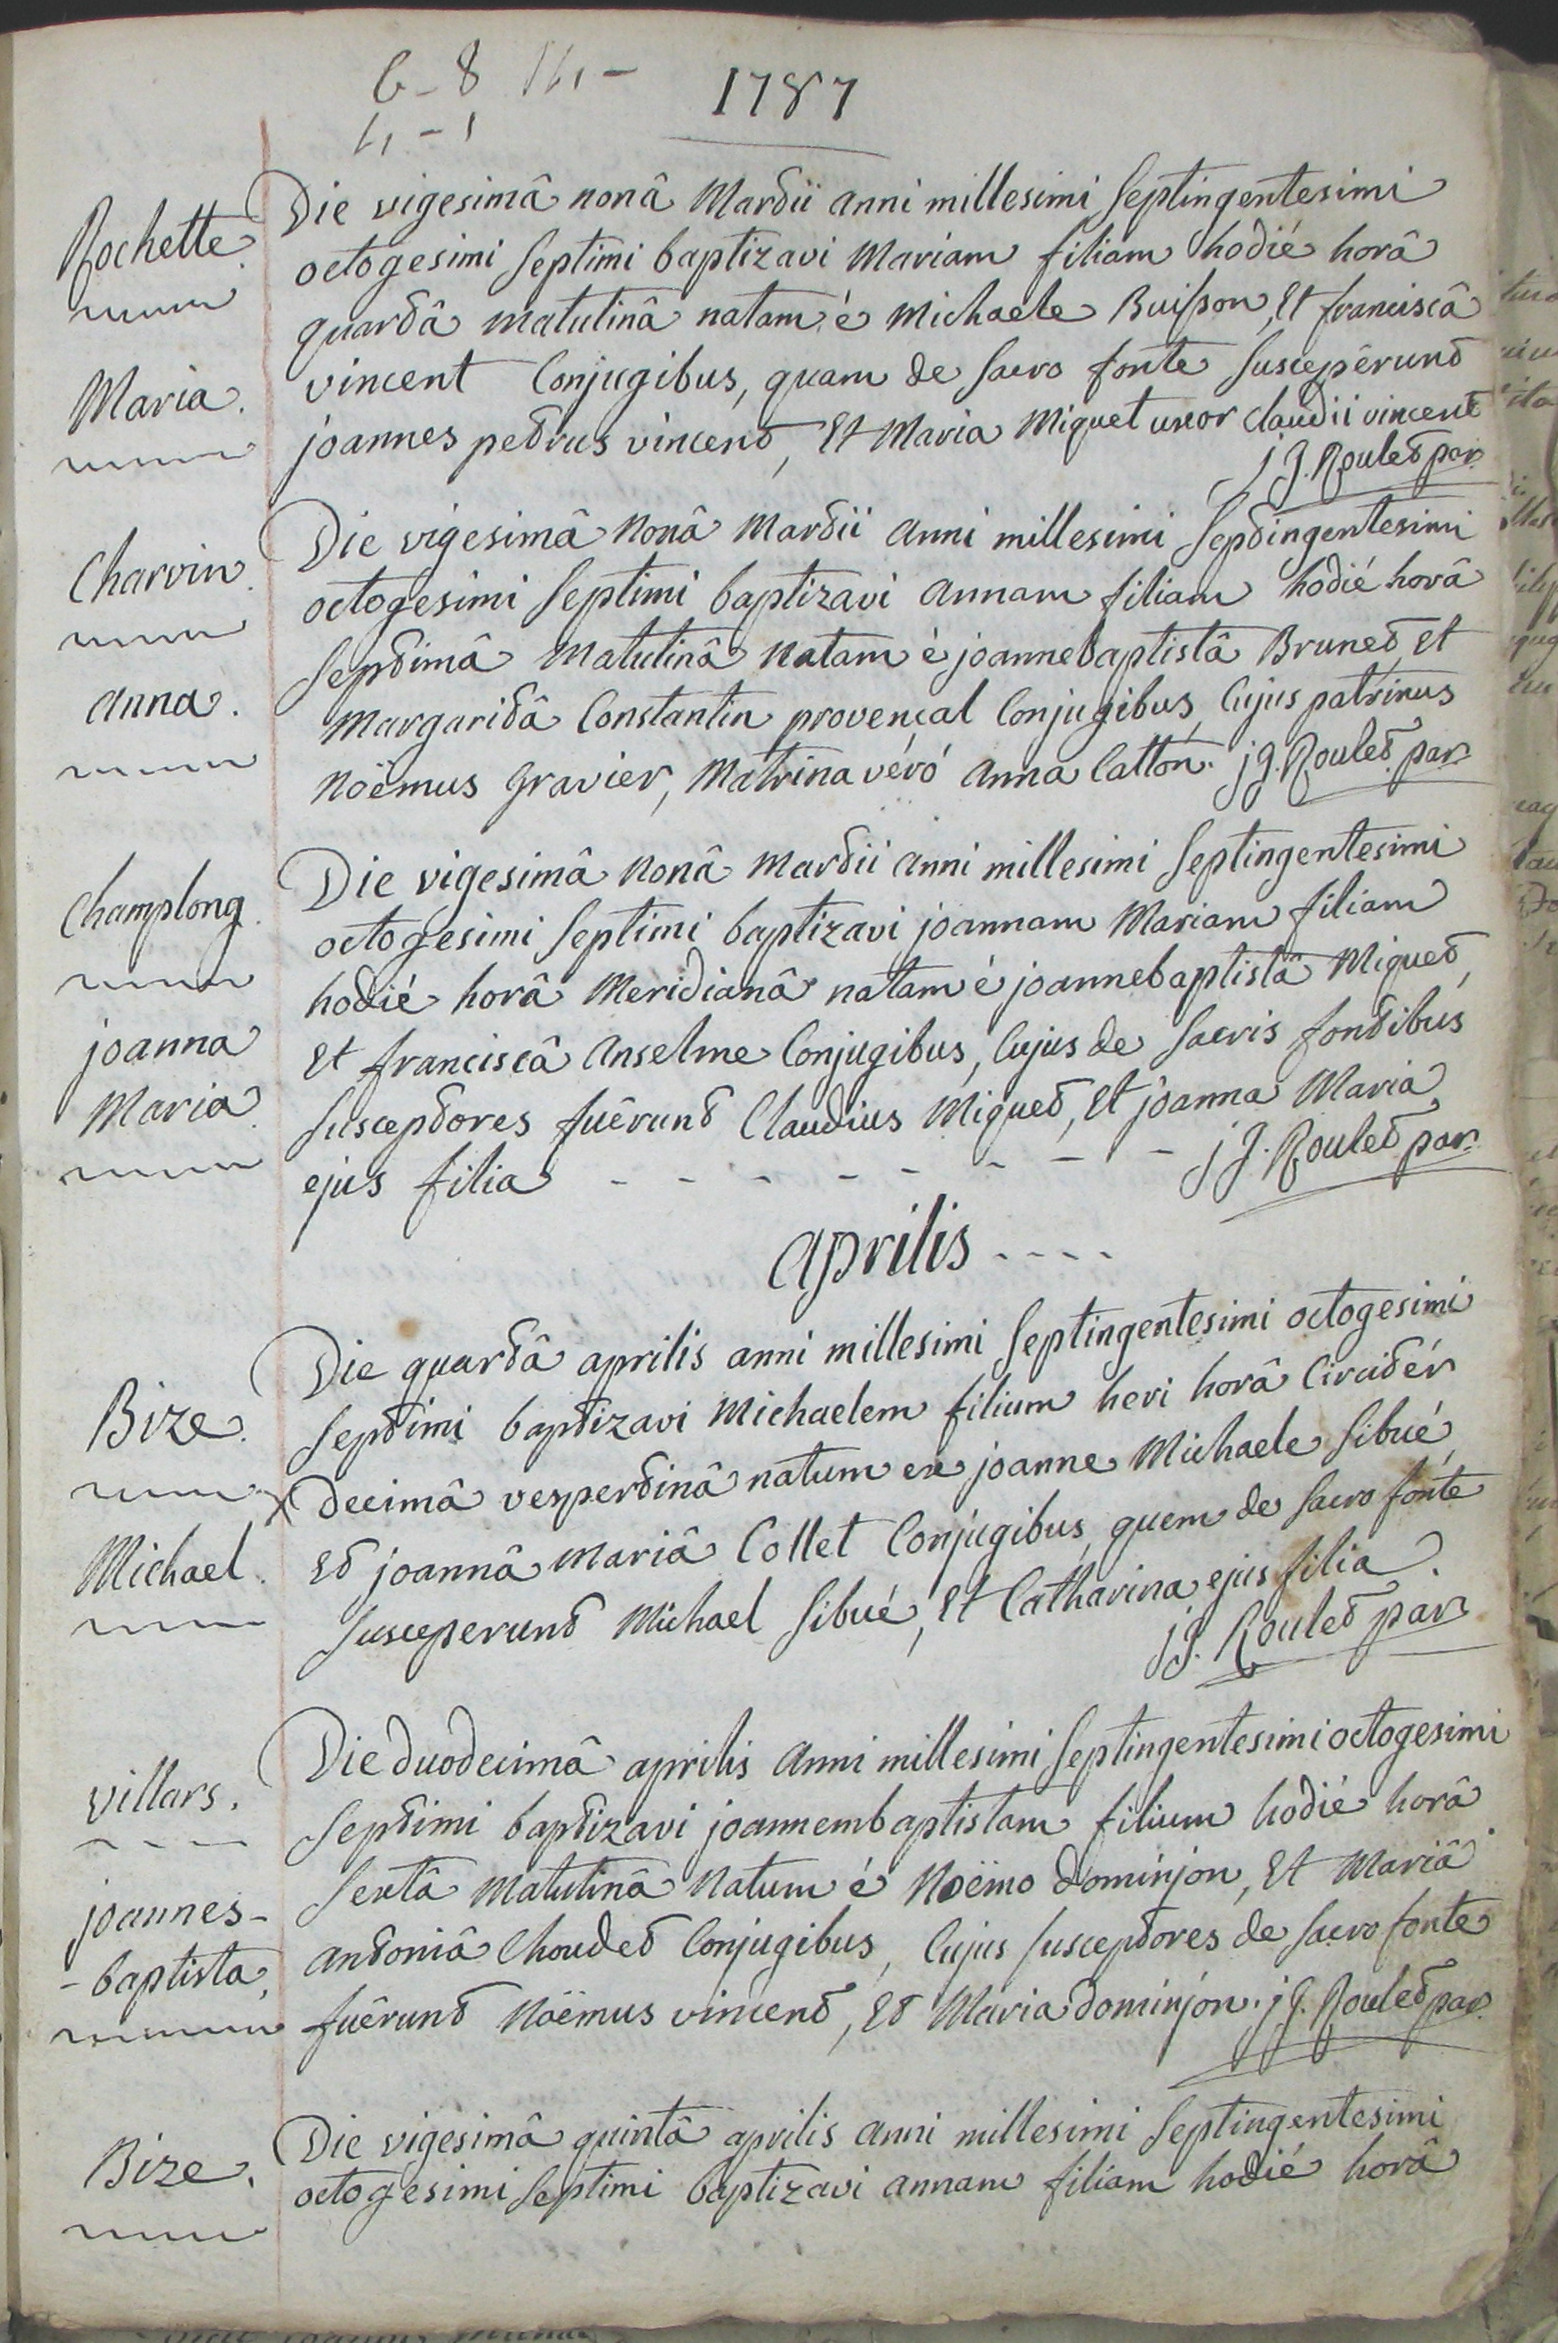 6 - 8
1787
Rochette.
Maria.
Die vigesimâ nonâ Martii anni millesimi Septingentesimi
octogesimi Septimi baptizavi Mariam filiam hodié horâ
quartâ matutinâ natam é Michaele Buisson, Et franciscâ
vincent Conjugibus, quam de Sacro fonte Suscepêrunt
joannes petrus vincent, Et Maria Miquet uxor Claudii vincent
j J. Roulet par.
Charvin.
anna.
Die vigesimâ Nonâ Martii anni millesimi Septingentesimi
octogesimi Septimi baptizavi annam filiam hodié horâ
Septimâ Matutinâ Natam é joannebaptistâ Brunet, Et
Margaritâ Constantin provençal Conjugibus, Cujus patrinus
Nöëmus Gravier, Matrina véró Anna Catton. j J. Roulet par.
Champlong.
joanna
Maria.
Die vigesimâ Nonâ Martii anni millesimi Septingentesimi
octogesimi Septimi baptizavi joannam Mariam filiam
hodié horâ Meridianâ natam é joannebaptistâ Miquet,
Et franciscâ Anselme Conjugibus, Cujus de Sacris fontibus
Susceptores fuêrunt Claudius Miquet, Et joanna Maria
ejus filia - - - - - - - - j J. Roulet par.
Aprilis - - - -
Bize.
Michael.
Die quartâ aprilis anni millesimi Septingentesimi octogesimi
Septimi baptizavi Michaelem filium heri horâ Circitér
x Decimâ vespertinâ natum ex joanne Michaele Sibué,
Et joannâ Mariâ Collet Conjugibus, quem de Sacro fonte
Susceperunt Michael Sibué, Et Catharina ejus filia.
j J. Roulet par.
villars.
joannes-
-baptista,
Die duodecimâ aprilis anni millesimi Septingentesimi octogesimi
Septimi baptizavi joannembaptistam filium hodié horâ
Sextâ Matutinâ Natum é Noëmo dominjon, Et Mariâ
antoniâ Choudet Conjugibus, Cujus Susceptores de Sacro fonte
fuêrunt Nöëmus vincent, Et Maria dominjon. j J. Roulet par.
Bize.
Die vigesimâ quintâ aprilis anni millesimi Septingentesimi
octogesimi Septimi baptizavi annam filiam hodié horâ